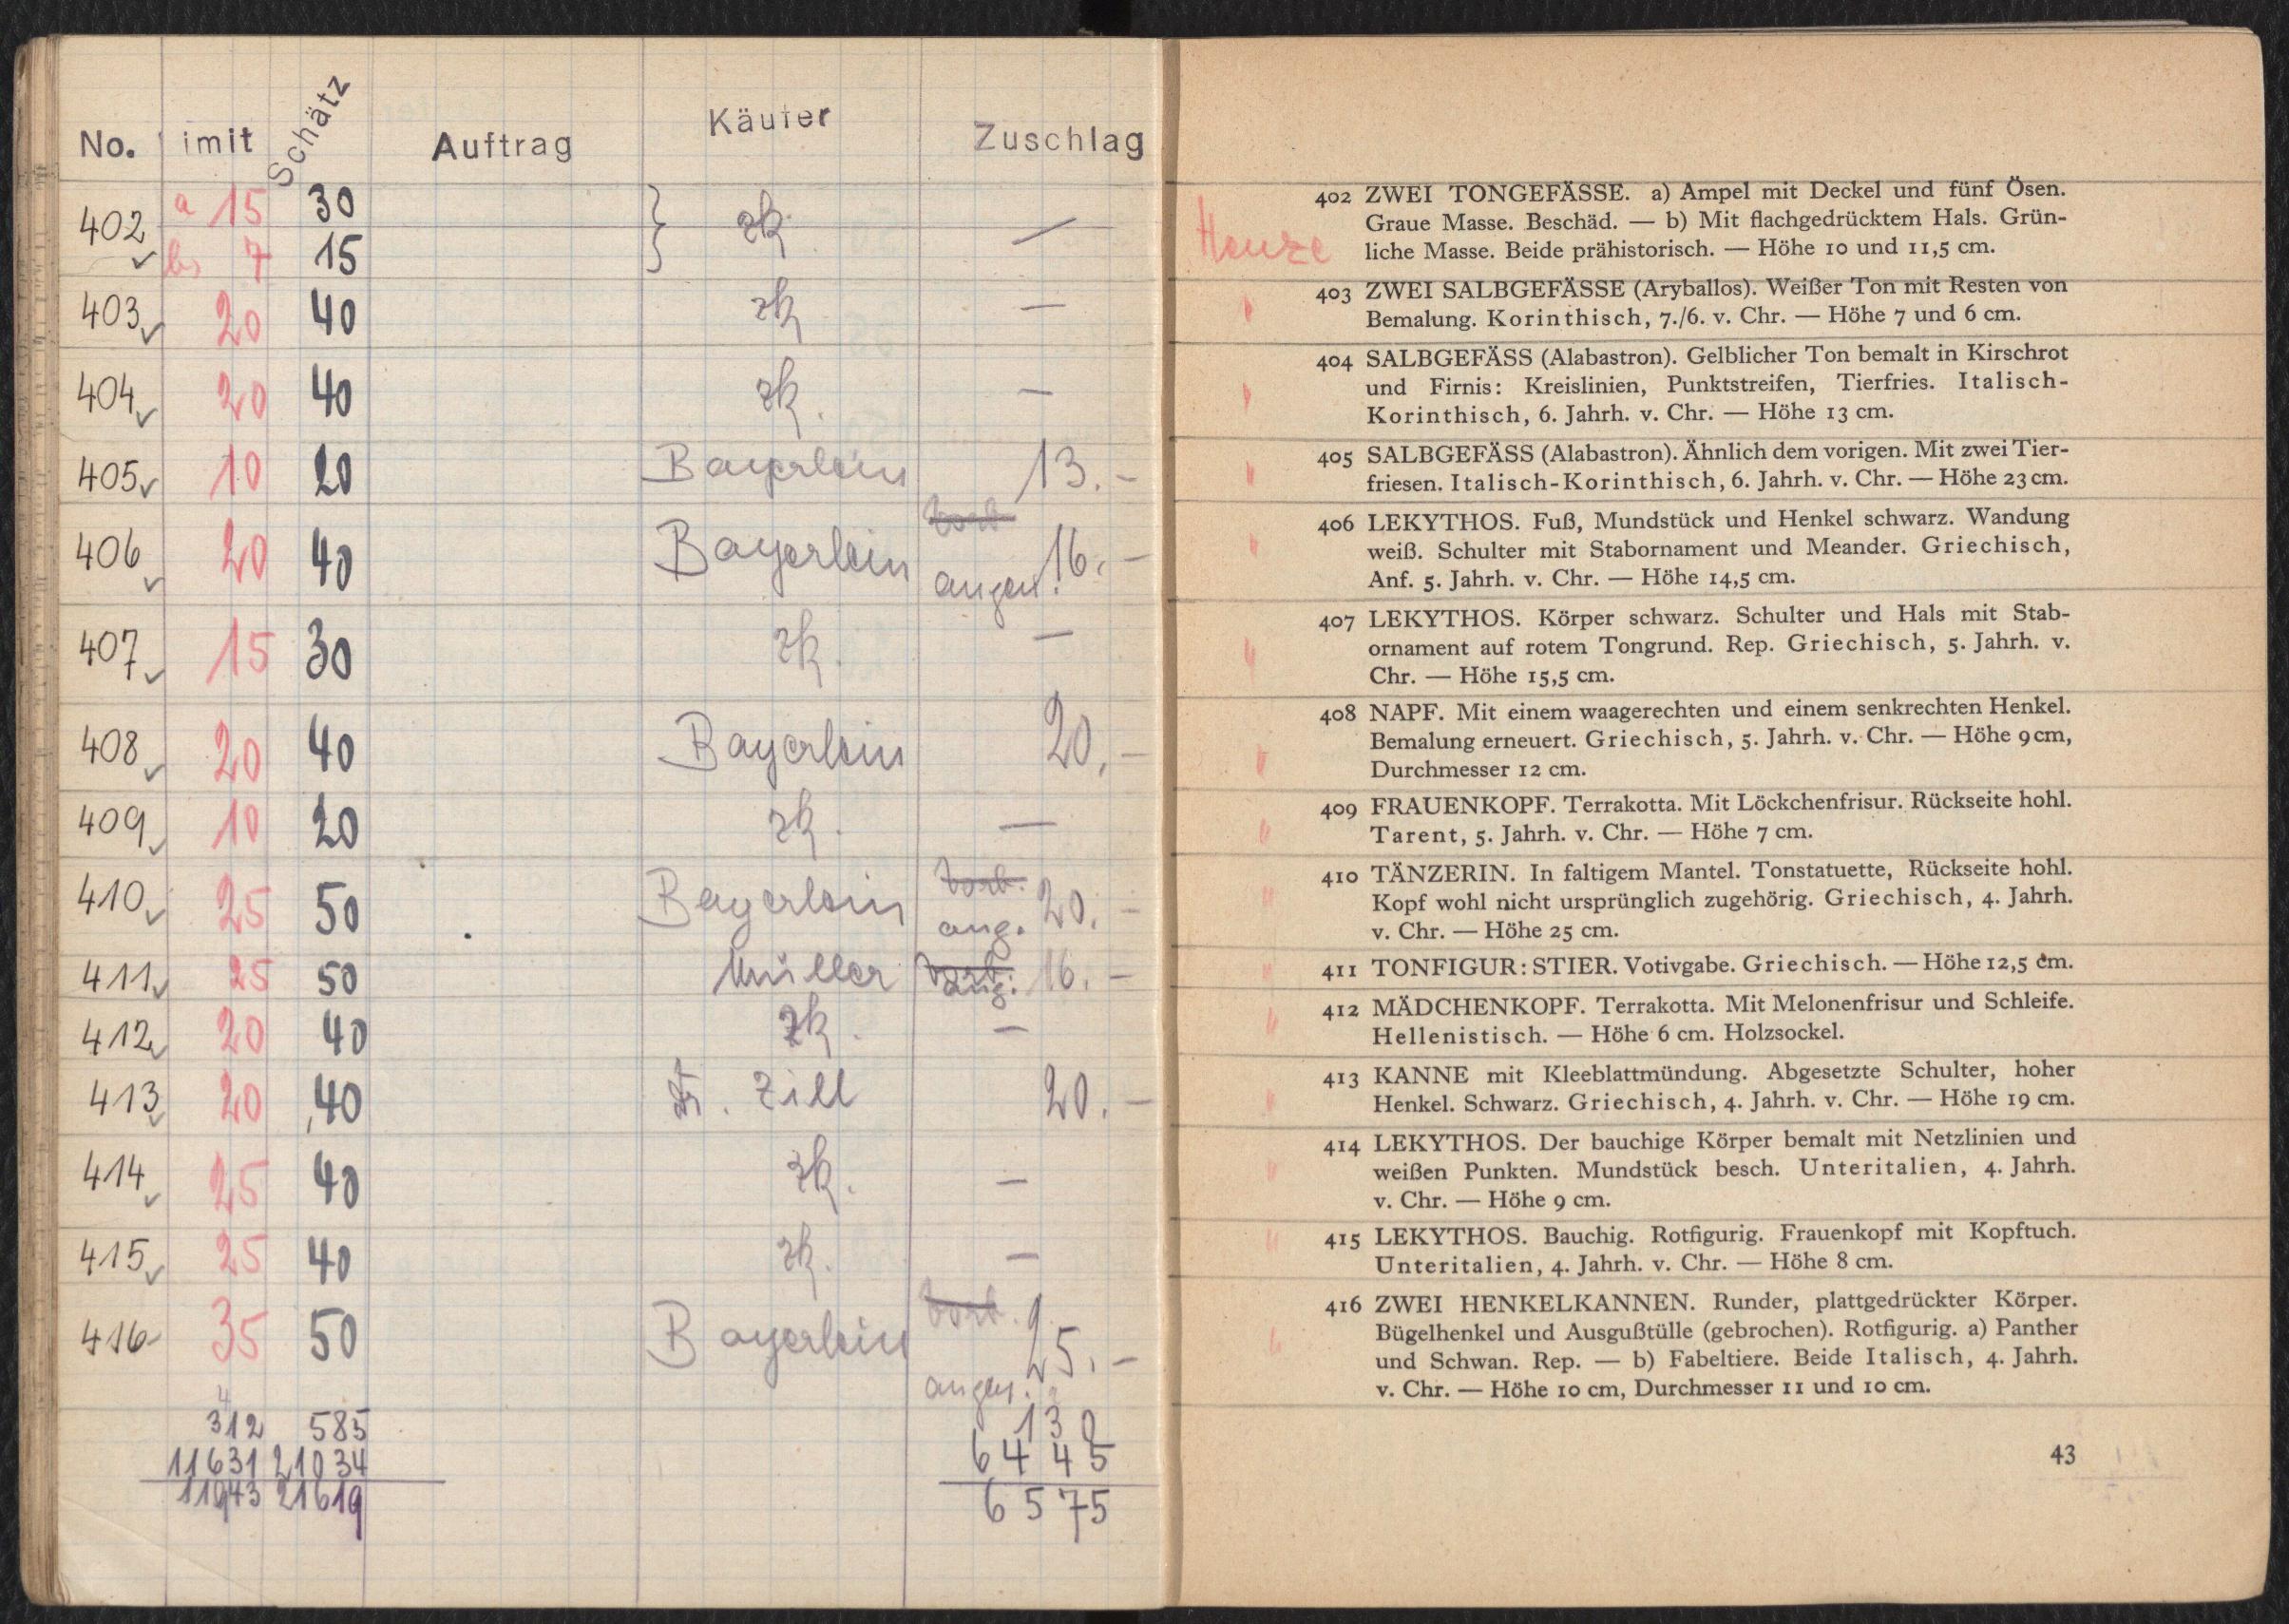 No. imit Schätz Auftrag Käufer Zuschlag
402 a 15 30 zk. —
b 7 15
403 20 40 zk —
404 20 40 zk. —
405 10 20 Bayerlein 13.-
vorb.
406 20 40 Bayerlein 16.-
angen.
407 15 30 zk. —
408 20 40 Bayerlein 20.-
409 10 20 zk. —
vorb.
410 25 50 Bayerlein 20.-
ang.
411 25 50 Müller vorb. 16.-
ang.
412 20 40 zk. —
413 20 40 Dr. Zill 20.-
414 25 40 zk. —
415 25 40 zk. —
vorb.
416 35 50 Bayerlein 25.-
angen.
312 585 130
11631 21034 6445
11943 21619 6575
402 ZWEI TONGEFÄSSE. a) Ampel mit Deckel und fünf Ösen.
Graue Masse. Beschäd. — b) Mit flachgedrücktem Hals. Grün-
Heuze liche Masse. Beide prähistorisch. — Höhe 10 und 11,5 cm.
403 ZWEI SALBGEFÄSSE (Aryballos). Weißer Ton mit Resten von
Bemalung. Korinthisch, 7./6. v. Chr. — Höhe 7 und 6 cm.
404 SALBGEFÄSS (Alabastron). Gelblicher Ton bemalt in Kirschrot
und Firnis: Kreislinien, Punktstreifen, Tierfries. Italisch-
Korinthisch, 6. Jahrh. v. Chr. — Höhe 13 cm.
405 SALBGEFÄSS (Alabastron). Ähnlich dem vorigen. Mit zwei Tier-
friesen. Italisch-Korinthisch, 6. Jahrh. v. Chr. — Höhe 23 cm.
406 LEKYTHOS. Fuß, Mundstück und Henkel schwarz. Wandung
weiß. Schulter mit Stabornament und Meander. Griechisch,
Anf. 5. Jahrh. v. Chr. — Höhe 14,5 cm.
407 LEKYTHOS. Körper schwarz. Schulter und Hals mit Stab-
ornament auf rotem Tongrund. Rep. Griechisch, 5. Jahrh. v.
Chr. — Höhe 15,5 cm.
408 NAPF. Mit einem waagerechten und einem senkrechten Henkel.
Bemalung erneuert. Griechisch, 5. Jahrh. v. Chr. — Höhe 9 cm,
Durchmesser 12 cm.
409 FRAUENKOPF. Terrakotta. Mit Löckchenfrisur. Rückseite hohl.
Tarent, 5. Jahrh. v. Chr. — Höhe 7 cm.
410 TÄNZERIN. In faltigem Mantel. Tonstatuette, Rückseite hohl.
Kopf wohl nicht ursprünglich zugehörig. Griechisch, 4. Jahrh.
v. Chr. — Höhe 25 cm.
411 TONFIGUR: STIER. Votivgabe. Griechisch. — Höhe 12,5 cm.
412 MÄDCHENKOPF. Terrakotta. Mit Melonenfrisur und Schleife.
Hellenistisch. — Höhe 6 cm. Holzsockel.
413 KANNE mit Kleeblattmündung. Abgesetzte Schulter, hoher
Henkel. Schwarz. Griechisch, 4. Jahrh. v. Chr. — Höhe 19 cm.
414 LEKYTHOS. Der bauchige Körper bemalt mit Netzlinien und
weißen Punkten. Mundstück besch. Unteritalien, 4. Jahrh.
v. Chr. — Höhe 9 cm.
415 LEKYTHOS. Bauchig. Rotfigurig. Frauenkopf mit Kopftuch.
Unteritalien, 4. Jahrh. v. Chr. — Höhe 8 cm.
416 ZWEI HENKELKANNEN. Runder, plattgedrückter Körper.
Bügelhenkel und Ausgußtülle (gebrochen). Rotfigurig. a) Panther
und Schwan. Rep. — b) Fabeltiere. Beide Italisch, 4. Jahrh.
v. Chr. — Höhe 10 cm, Durchmesser 11 und 10 cm.
43